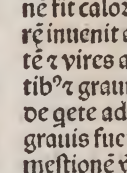 ne fit calor
rē inuenit
tē ⁊ vires a
tibꝰ ⁊ grau
de qete ad
grauis fuc
mestionē v